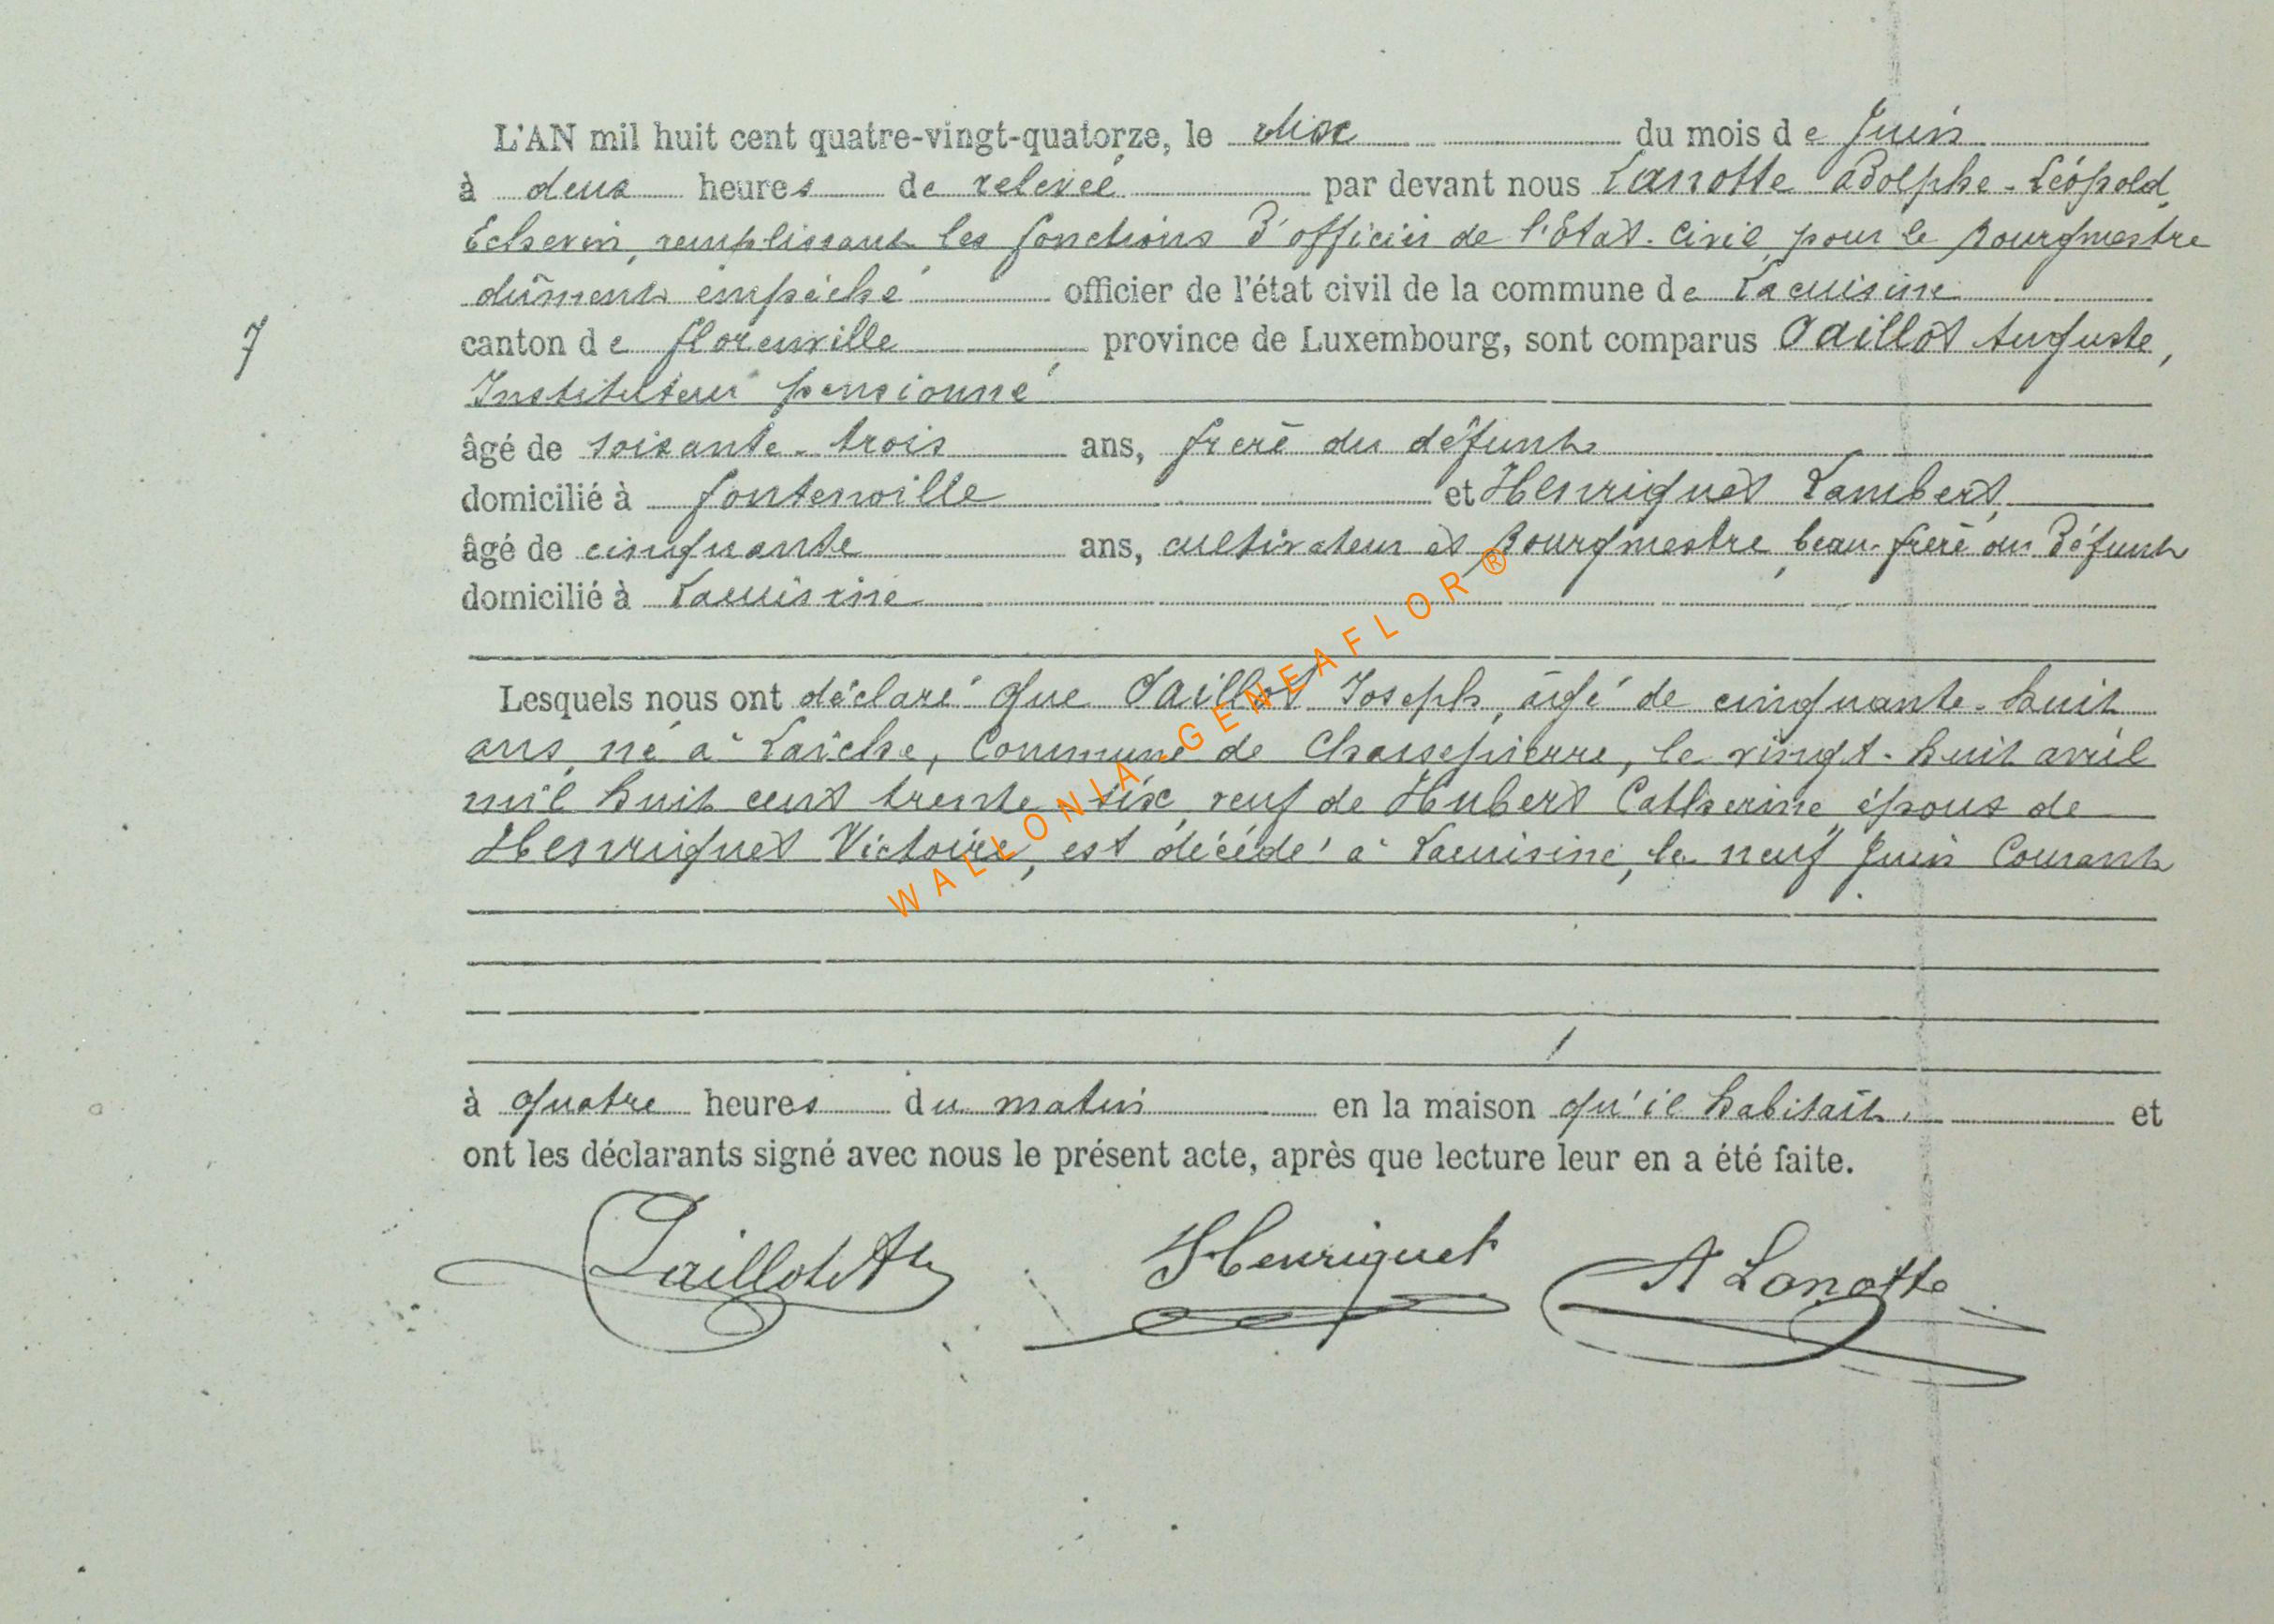 L'AN mil huit cent quatre-vingt-quatorze, le dix du mois de Juin
à deux heures de relevée par devant nous Lanotte Adolphe-Léopold,
Echevin, remplissant les fonctions d'officier de l'Etat-Civil, pour le Bourgmestre
dûment empêché officier de l'état civil de la commune de Lacuisine
7
canton de Florenville, province de Luxembourg, sont comparus Taillot Auguste,
Instituteur pensionné
âgé de soixante-trois ans, frère du défunt
domicilié à Fontenoille et Henriquet Lambert,
âgé de cinquante ans, cultivateur et Bourgmestre, beau-frère du défunt
domicilié à Lacuisine
Lesquels nous ont déclaré que Taillot Joseph, âgé de cinquante-huit
ans, né à Laiche, Commune de Chassepierre, le vingt-huit avril
mil huit cent trente-six, veuf de Hubert Catherine, époux de
Henriquet Victoire, est décédé à Lacuisine, le neuf Juin Courant
à quatre heures du matin en la maison qu'il habitait, et
ont les déclarants signé avec nous le présent acte, après que lecture leur en a été faite.
Henriquet A Lanotte
WALLONIA-GENEAFLOR®